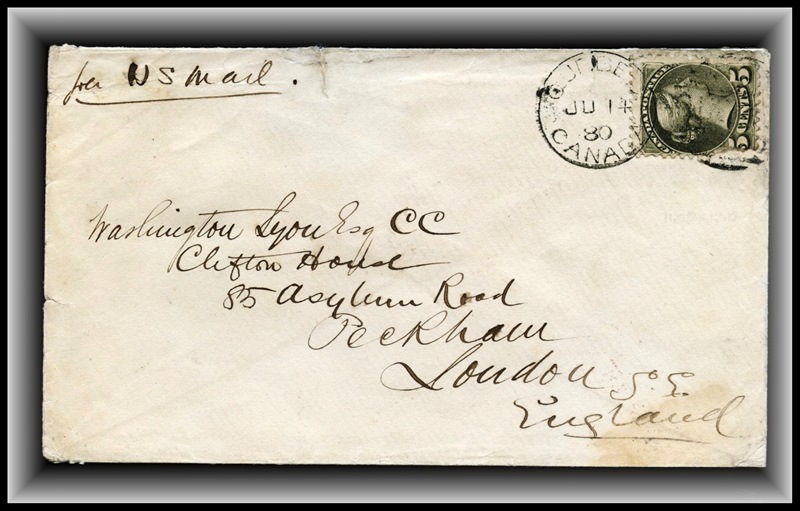 per U S Mail .
QUEBEC
JU 14
80
CANADA
CANADA POSTAGE
5 CENTS 5
Washington Lyon Esq CC
Clifton House
85 Asylum Road
Peckham
London S.E.
England